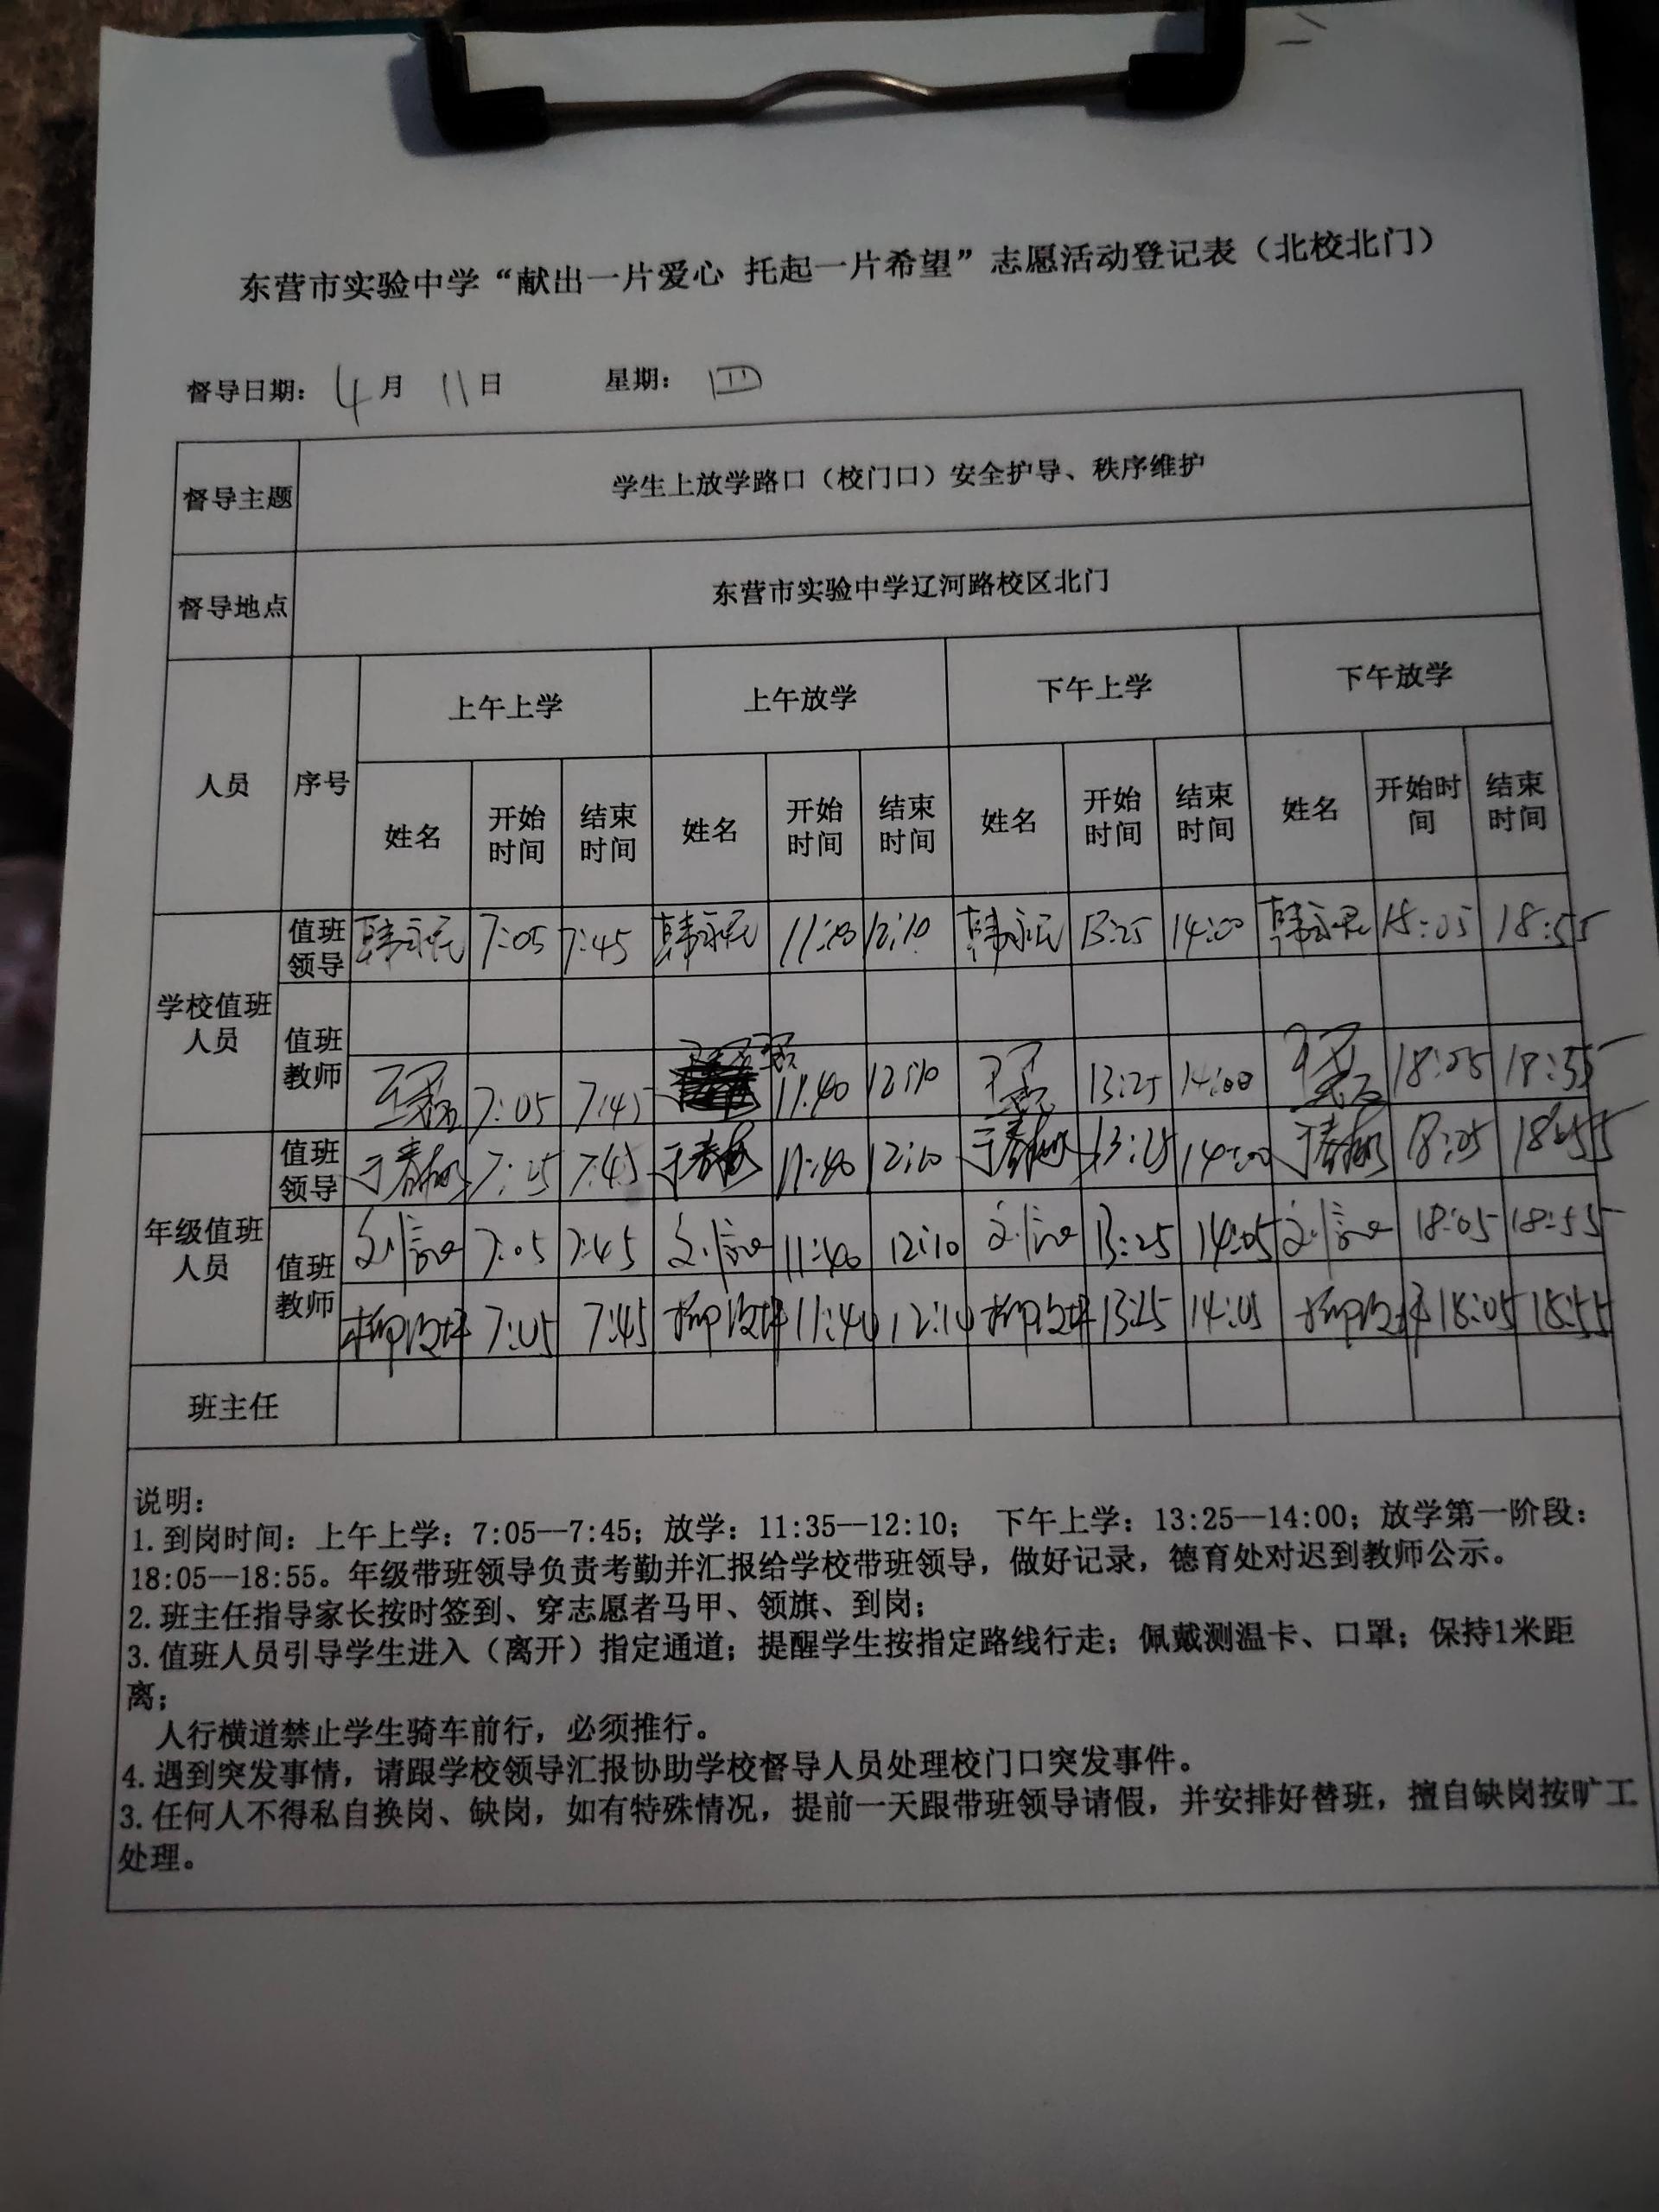 东营市实验中学“献出一片爱心 托起一片希望”志愿活动登记表（北校北门）
督导日期： 4月 11日 星期： 四
督导主题 学生上放学路口（校门口）安全护导、秩序维护
督导地点 东营市实验中学辽河路校区北门
人员 序号 上午上学 上午放学 下午上学 下午放学
姓名 开始时间 结束时间 姓名 开始时间 结束时间 姓名 开始时间 结束时间 姓名 开始时间 结束时间
学校值班人员 值班领导 韩永民 7:05 7:45 韩永民 12:10 韩永民 13:25 14:00 韩永民 18:05 18:55
值班教师 7:05 7:45 11:40 12:10 13:25 14:00 18:05 18:55
年级值班人员 值班领导 于春梅 7:05 7:45 于春梅 11:40 12:10 于春梅 13:25 14:00 于春梅 18:05 18:55
值班教师 7:05 7:45 11:40 12:10 13:25 14:05 18:05 18:55
7:05 7:45 11:40 12:10 13:25 14:05 18:05 18:55
班主任
说明：
1.到岗时间：上午上学：7:05—7:45；放学：11:35—12:10； 下午上学：13:25—14:00；放学第一阶段：
18:05—18:55。年级带班领导负责考勤并汇报给学校带班领导，做好记录，德育处对迟到教师公示。
2.班主任指导家长按时签到、穿志愿者马甲、领旗、到岗；
3.值班人员引导学生进入（离开）指定通道；提醒学生按指定路线行走；佩戴测温卡、口罩；保持1米距
离；
人行横道禁止学生骑车前行，必须推行。
4.遇到突发事情，请跟学校领导汇报协助学校督导人员处理校门口突发事件。
3.任何人不得私自换岗、缺岗，如有特殊情况，提前一天跟带班领导请假，并安排好替班，擅自缺岗按旷工
处理。